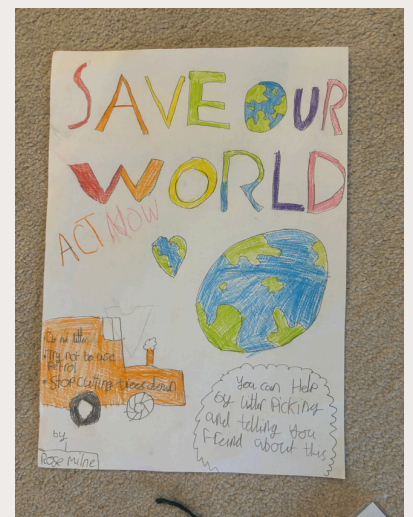 SAVE OUR
WORLD
ACT NOW
Do not litter
• Try not to use
Petrol
• Stop cutting trees down
You can Help
by litter Picking
and telling you
friend about this
by
Rose Milne